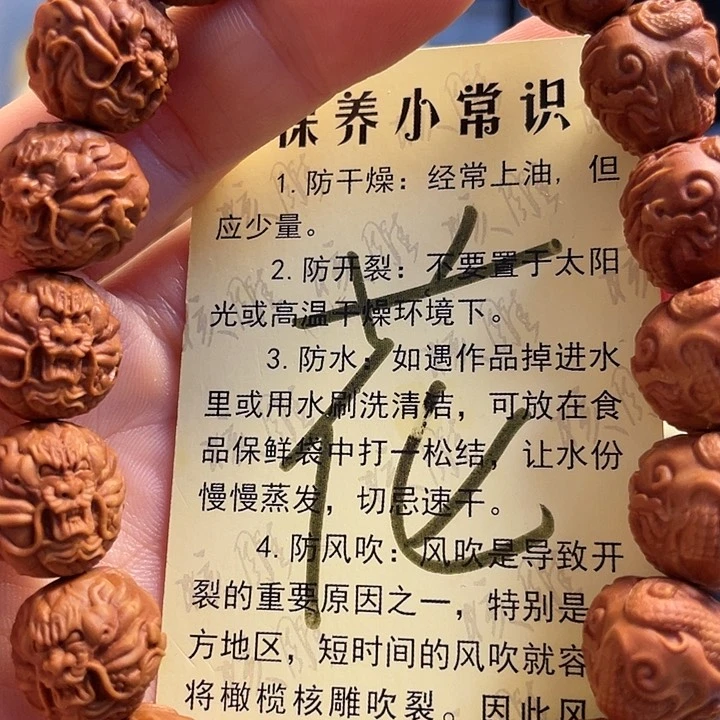 保养小常识
1. 防干燥：经常上油，但
应少量。
2. 防开裂：不要置于太阳
光或高温干燥环境下。
3. 防水：如遇作品掉进水
里或用水刷洗清洁，可放在食
品保鲜袋中打一松结，让水份
慢慢蒸发，切忌速干。
4. 防风吹：风吹是导致开
裂的重要原因之一，特别是
方地区，短时间的风吹就容
将橄榄核雕吹裂。因此风
花